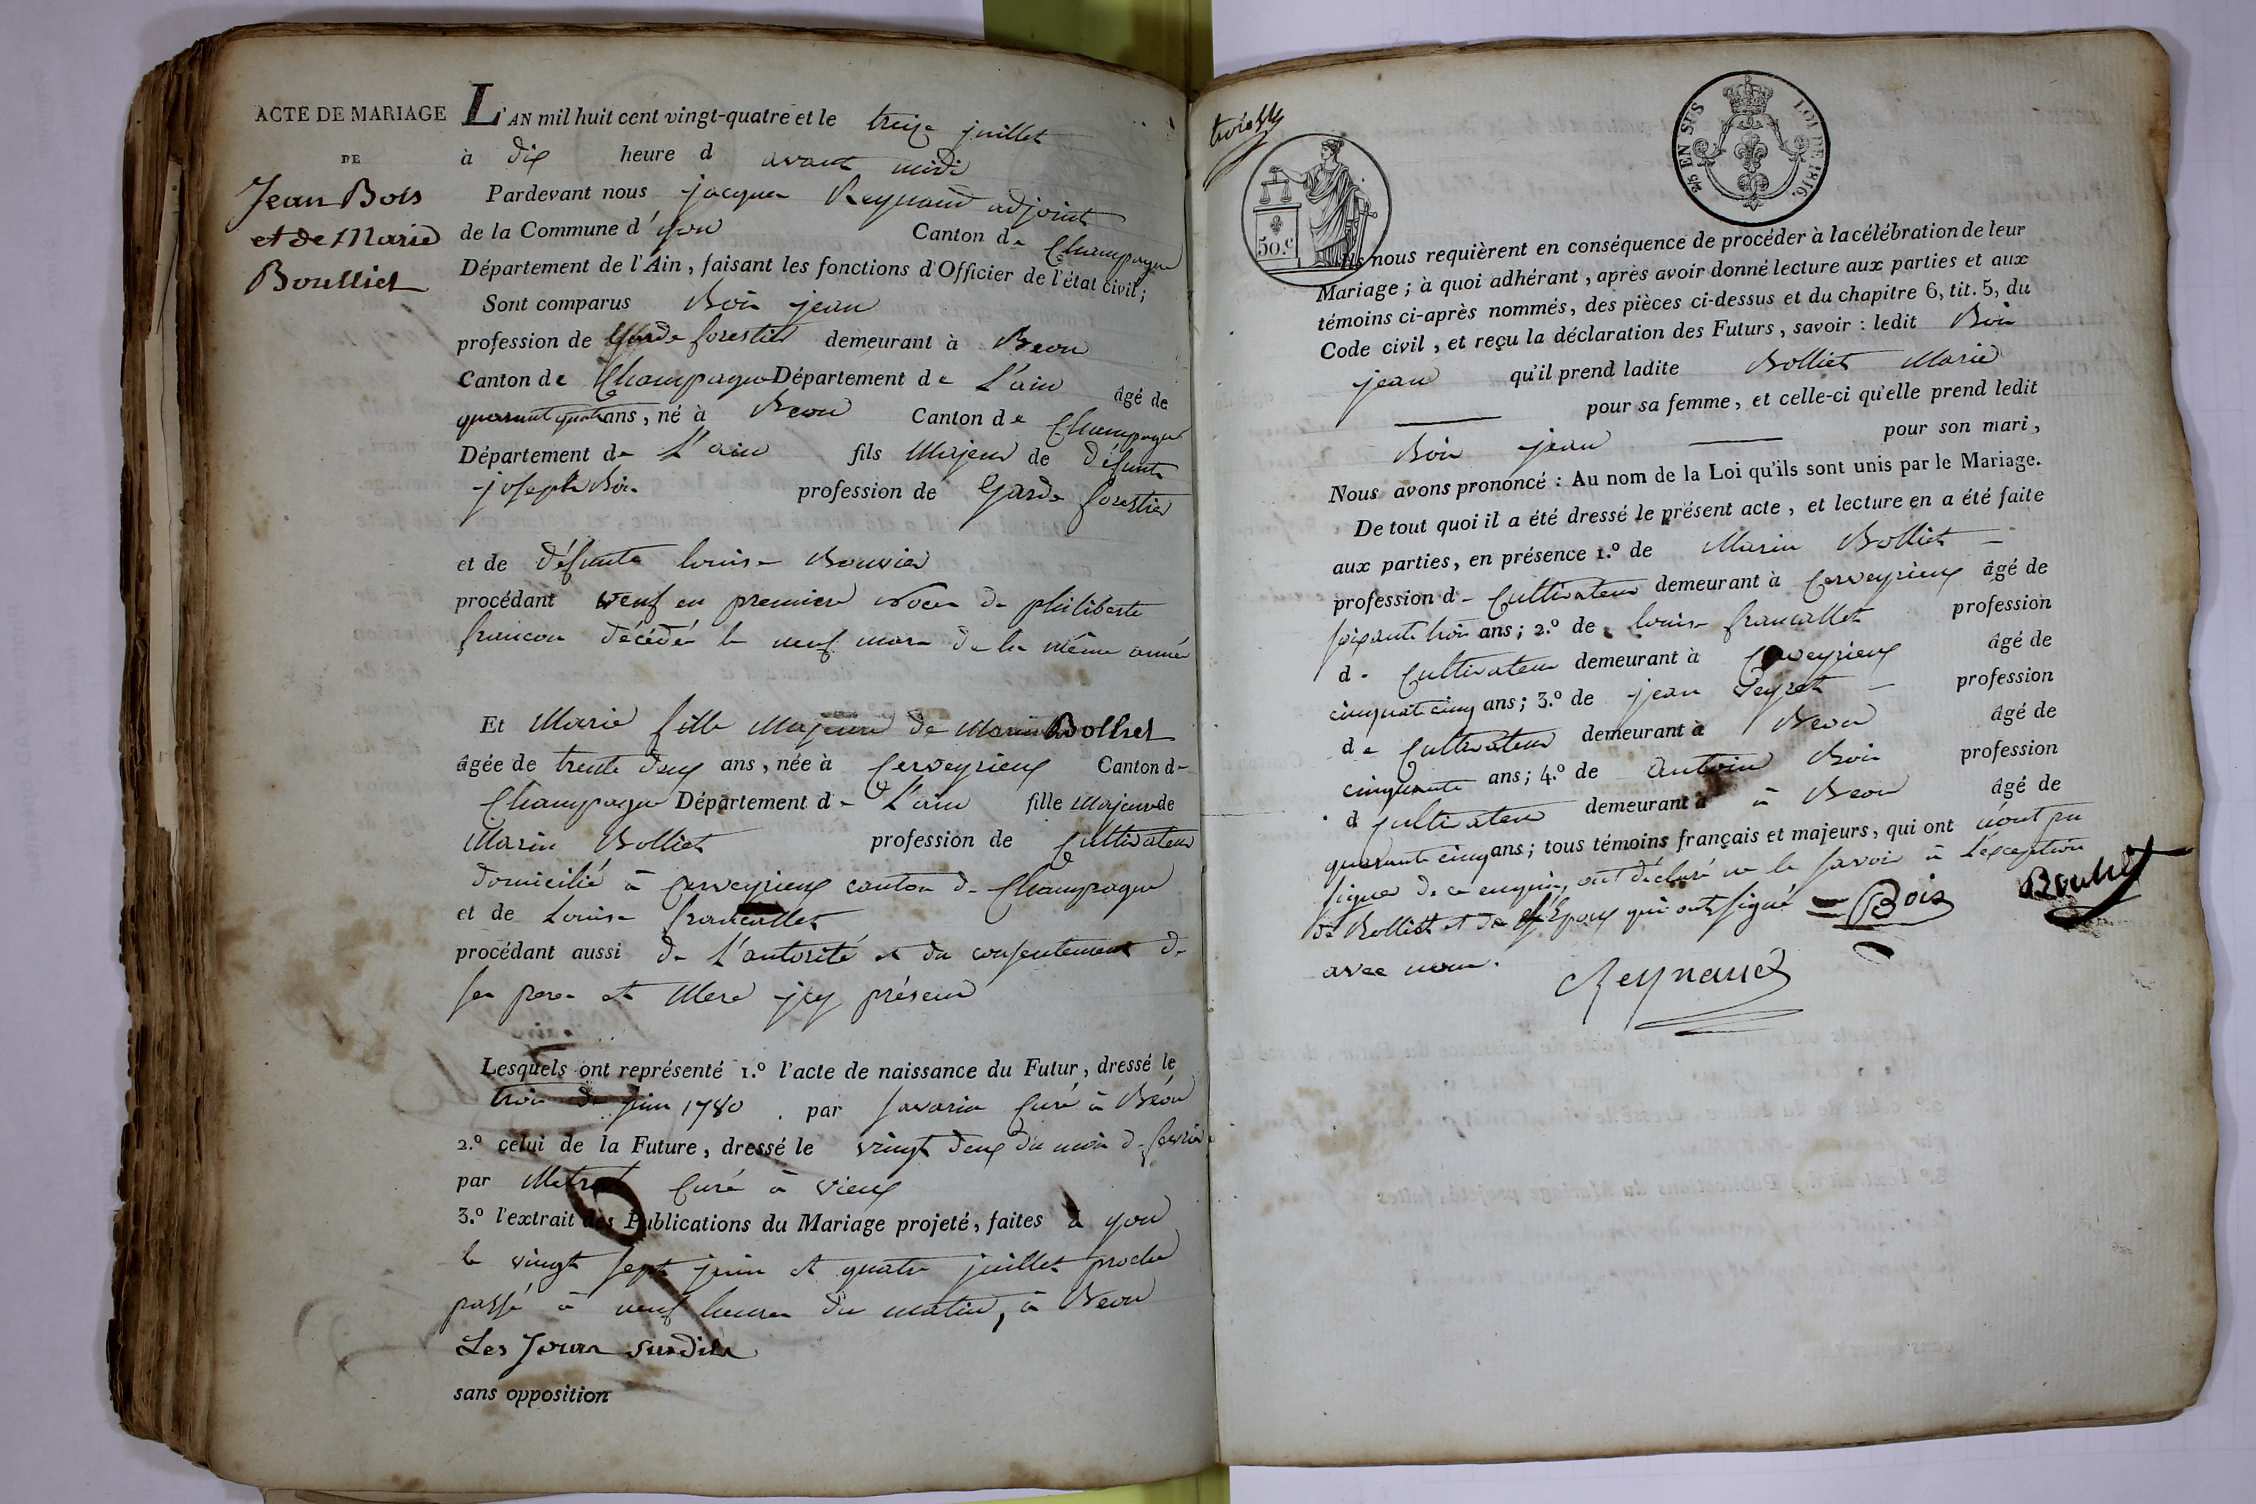 ACTE DE MARIAGE
DE
Jean Bois
et de Marie
Boulliet
L'AN mil huit cent vingt-quatre et le treize juillet
à dix heure d avant midi
Pardevant nous jacques Reynaud adjoint
de la Commune d'yon Canton de Champagne
Département de l'Ain, faisant les fonctions d'Officier de l'état civil;
Sont comparus Bois jean
profession de Garde forestier demeurant à Beon
Canton de Champagne Département de L'ain âgé de
quarant quatre ans, né à Beon Canton de Champagne
Département de L'ain fils Majeur de défunt
joseph Bois profession de Garde forestier
et de défunte louise Bouvier
procédant veuf en premiere noces de philiberte
francon décédée le neuf mars de la même année
Et Marie fille Majeure de Marin Bolliet
âgée de trente deux ans, née à Cerveyrieux Canton de
Champagne Département de L'ain fille Majeure de
Marin Bolliet profession de Cultivateur
domicilié à Cerveyrieux canton de Champagne
et de Louise francallet
procédant aussi de L'autorité et du consentement de
ses peres et Mere icy présens
Lesquels ont représenté 1.º l'acte de naissance du Futur, dressé le
trois de juin 1780 par savarin Curé à Béon
2.º celui de la Future, dressé le vingt deux du mois de fevrier
par Metral Curé à vieux
3.º l'extrait des Publications du Mariage projeté, faites à yon
le vingt sept juin et quatre juillet proche
passé à neuf heures du matin, à Beon
Les Jours susdits
sans opposition
50.c
2/5 EN SUS
LOI DE 1816.
Ils nous requièrent en conséquence de procéder à la célébration de leur
Mariage; à quoi adhérant, après avoir donné lecture aux parties et aux
témoins ci-après nommés, des pièces ci-dessus et du chapitre 6, tit. 5, du
Code civil, et reçu la déclaration des Futurs, savoir: ledit Bois
jean qu'il prend ladite Bolliet Marie
pour sa femme, et celle-ci qu'elle prend ledit
Bois jean pour son mari,
Nous avons prononcé: Au nom de la Loi qu'ils sont unis par le Mariage.
De tout quoi il a été dressé le présent acte, et lecture en a été faite
aux parties, en présence 1.º de Marin Bolliet
profession de Cultivateur demeurant à Cerveyrieux âgé de
soixante trois ans; 2.º de louis francallet profession
de Cultivateur demeurant à Cerveyrieux âgé de
cinquante cinq ans; 3.º de jean Veyret profession
de Cultivateur demeurant à Beon âgé de
cinquante ans; 4.º de antoine Bois profession
d Cultivateur demeurant à à Beon âgé de
quarante cinq ans; tous témoins français et majeurs, qui ont n'ont pu
signer de ce enquis, ont déclaré ne le savoir à L'exception
de Bolliet et de L'Epoux qui ont signé Bois Boulliet
avec nous.
Reynaud